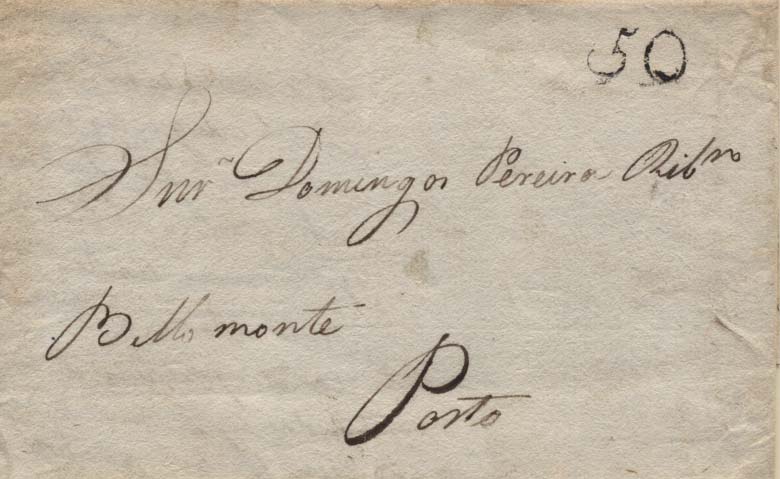 50
Snr. Domingos Pereira Ribro
Bellomonte
Porto